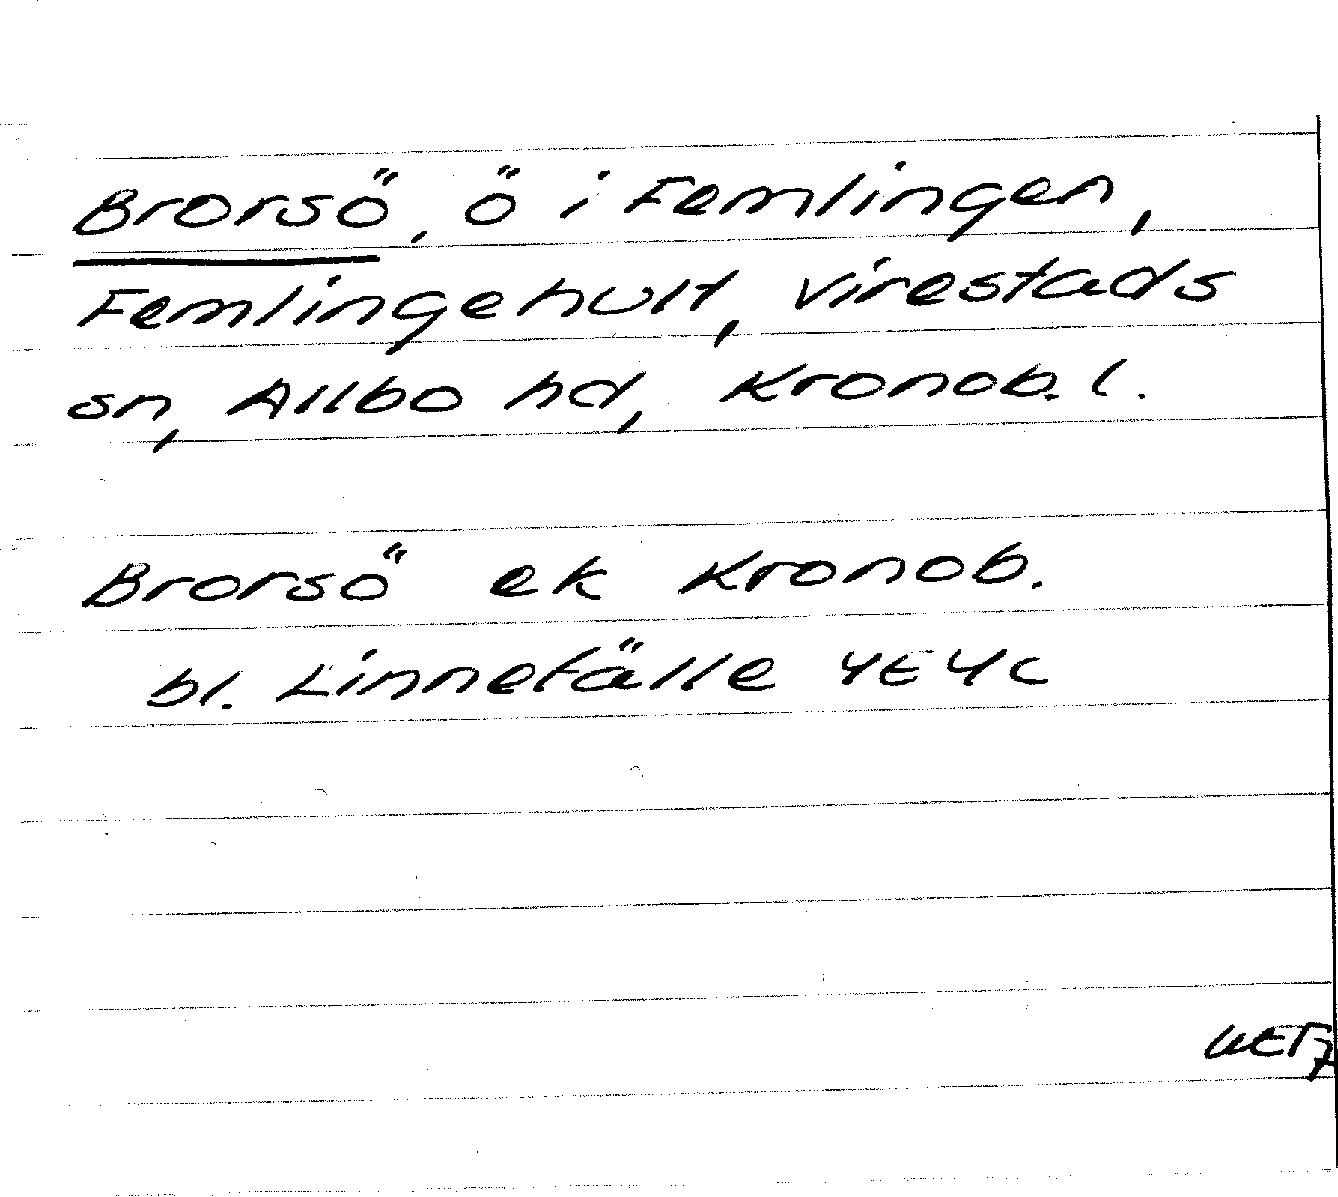 Brorsö, ö i Femlingen,
Femlingehult, Virestads
sn, Allbo hd, Kronob. l.
Brorsö ek Kronob.
bl. Linnefälle 4E4c